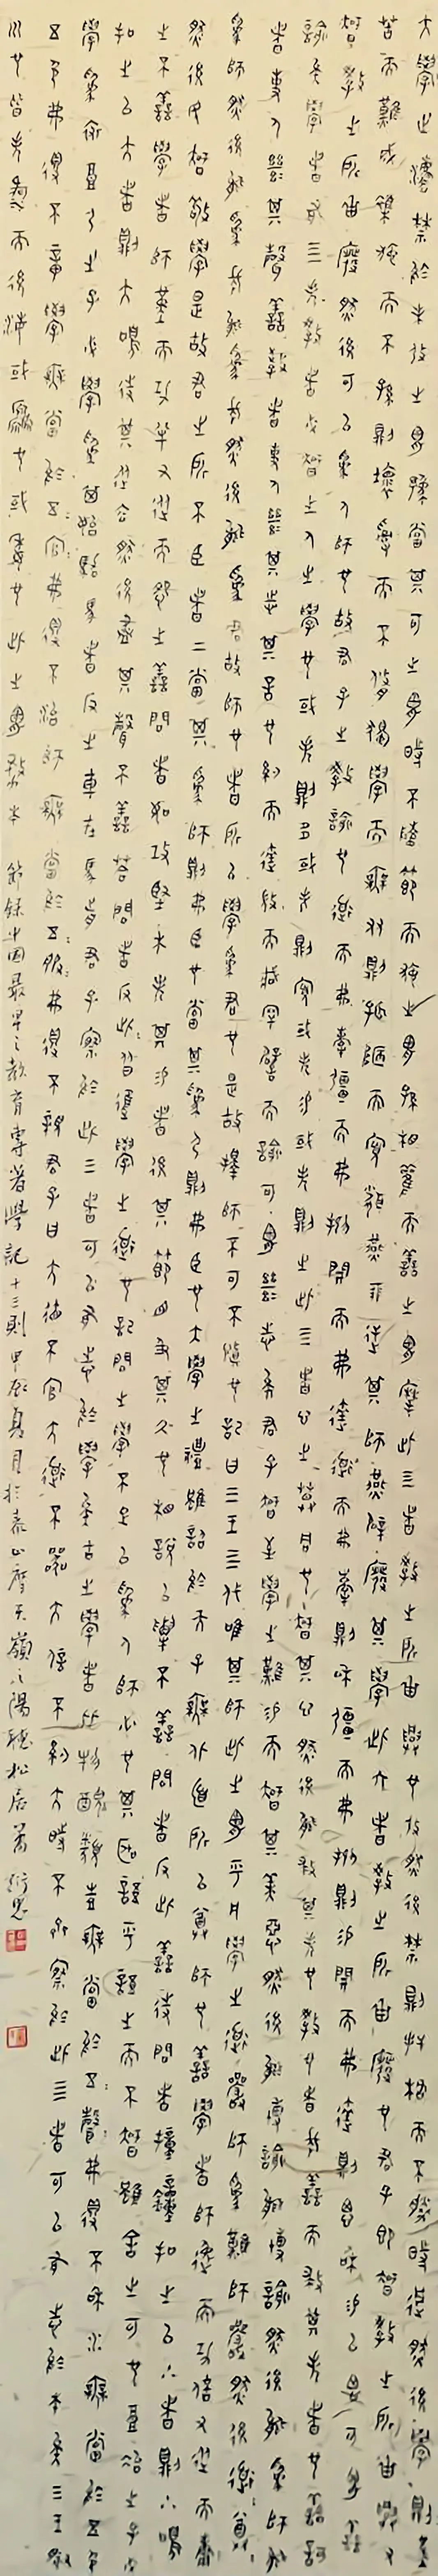 大學之灋禁於未發之胃豫當其可之胃時不陵節而施之胃孫相觀而善之胃摩此三者教之所由興也發然後禁則扞格而不勝時過然後學則堇
苦而難成雜施而不孫則壞亂而不修獨學而無友則孤陋而寡聞燕朋逆其師燕辟廢其學此六者教之所由廢也君子既知教之所由興又
知教之所由廢然後可以為人師也故君子之教喻也道而弗牽彊而弗抑開而弗達道而弗牽則和彊而弗抑則易開而弗達則思和易以思可胃善
喻矣學者有三失教者必知之人之學也或失則多或失則寡或失則易或失則止此三者心之莫同也知其心然後能救其失也教也者長善而救其失者也善歌
者使人繼其聲善教者使人繼其志其言也約而達微而臧罕譬而喻可胃繼志矣君子知至學之難易而知其美惡然後能博喻能博喻然後能為師能
為師然後能為長能為長然後能為君故師也者所以學為君也是故擇師不可不慎也記曰三王三代唯其師此之胃乎凡學之道嚴師為難師嚴然後道尊道尊
然後民知敬學是故君之所不臣者二當其為師則弗臣也當其為尸則弗臣也大學之禮雖詔於天子無北面所以尊師也善學者師逸而功倍又從而庸
之不善學者師勤而功半又從而怨之善問者如攻堅木先其易者後其節目及其久也相說以解不善問者反此善待問者如撞鐘叩之以小者則小鳴
叩之以大者則大鳴待其從容然後盡其聲不善答問者反此皆進學之道也記問之學不足以為人師必也其聽語乎語之而不知雖舍之可也良冶之子必
學為裘良弓之子必學為箕始駕馬者反之車在馬前君子察於此三者可以有志於學矣古之學者比物醜類鼓無當於五聲弗得不和水無當於五色
五色弗得不章學無當於五官弗得不治師無當於五服弗得不親君子曰大德不官大道不器大信不約大時不齊察於此三者可以有志於本矣三王之祭
川也皆先河而後海或源也或委也此之胃務本 節錄中國最早之教育專著學記十三則甲辰夏月於泰山摩天嶺之陽聽松居蕭衍思